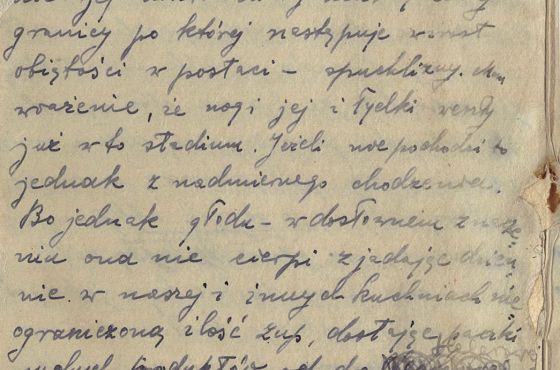 granicy po której następuje wzrost
objętości w postaci – spuchlizny. Mam
wrażenie, że nogi jej i łydki weszły
już w to stadium. Jeżeli nie pochodzi to
jednak z nadmiernego chodzenia.
Bo jednak głodu – w dosłownem znacze-
niu ona nie cierpi zjadając dzien-
nie w naszej i innych kuchniach nie
ograniczoną ilość zup, dostając paczki